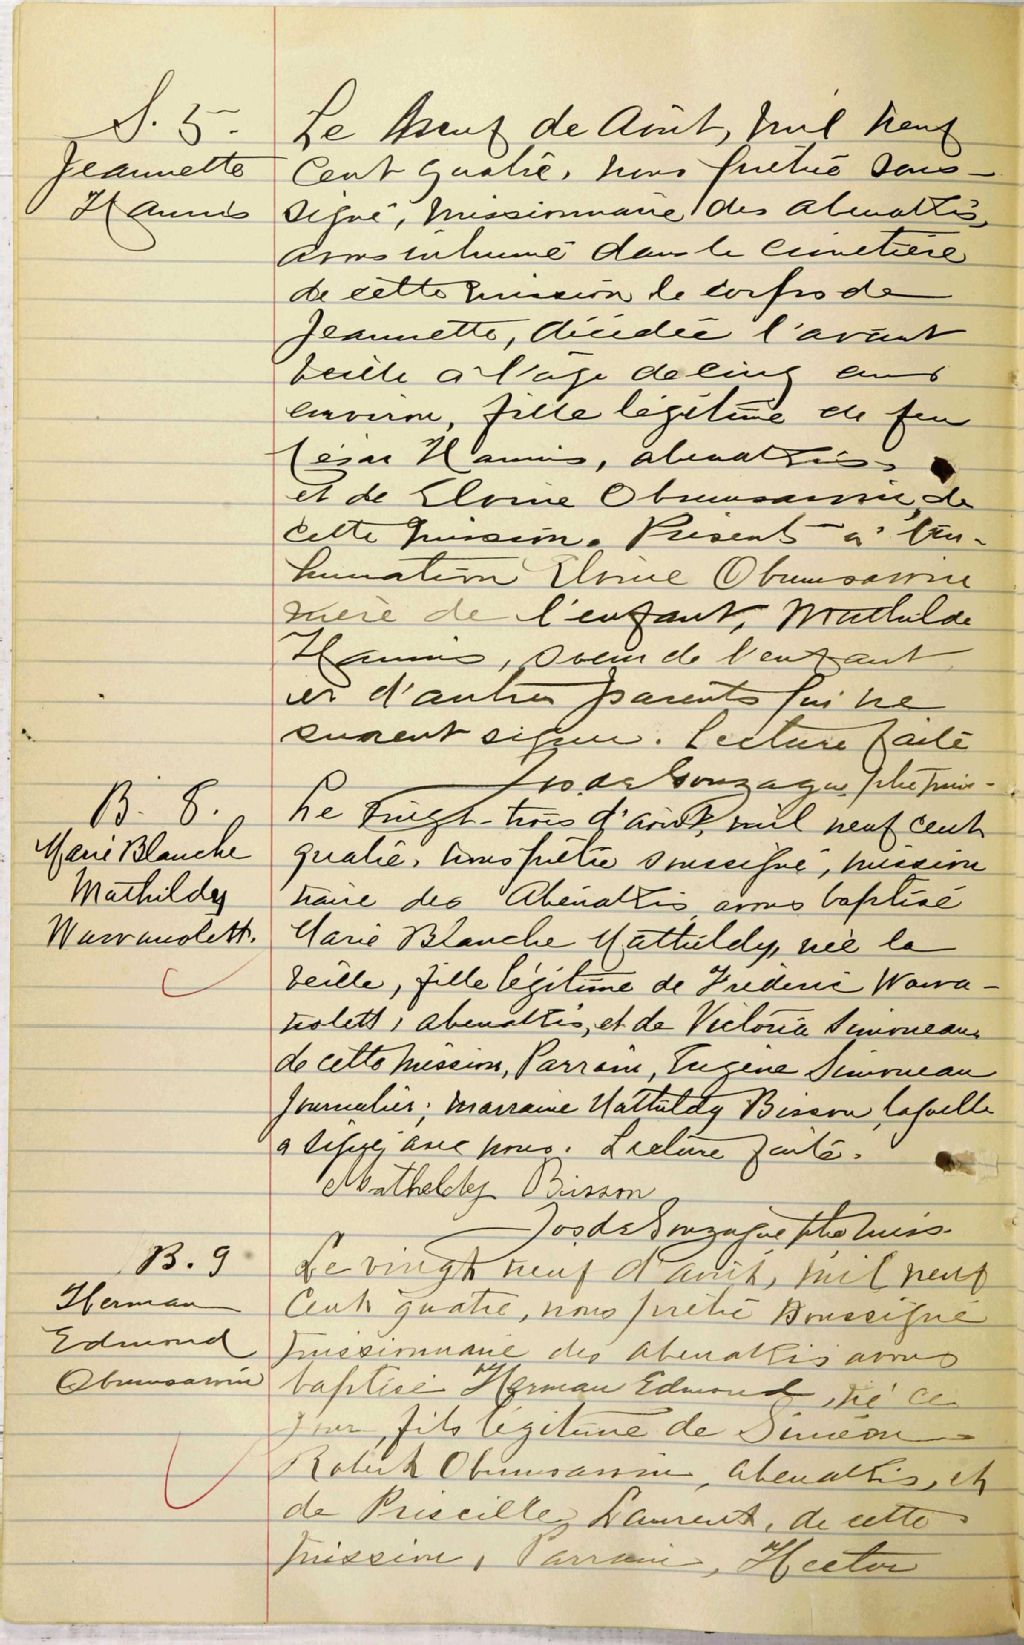 S. 5.
Jeannette
Hannis
Le neuf de Août, mil neuf
cent quatre, nous prêtre sous-
signé, missionnaire des abenakis,
avons inhumé dans le cimetière
de cette mission le corps de
Jeannette, décédée l'avant
veille à l'âge de cinq ans
environ, fille légitime de feu
César Hannis, abenakis,
et de Eloïse Obumsawin, de
cette mission. Présents à l'in-
humation Eloïse Obumsawin
mère de l'enfant, Mathilde
Hannis, soeur de l'enfant
et d'autres parents qui ne
surent signer. Lecture faite
Jos. de Gonzague ptre miss-
B. 8.
Marie Blanche
Mathildy
Wawanolett.
Le vingt-trois d'août, mil neuf cent
quatre, nous prêtre soussigné, mission
naire des Abénakis avons baptisé
Marie Blanche Mathildy, née la
veille, fille légitime de Frédéric Wawa-
nolett, abenakis, et de Victoria Simoneau
de cette mission, Parrain, Eugène Simoneau
journalier; marraine Mathildy Bisson, laquelle
a signé avec nous. Lecture faite.
Matheldy Bisson
Jos. de Gonzague ptre miss.
B. 9
Herman
Edmond
Obumsawin
Le vingt neuf d'août, mil neuf
cent quatre, nous prêtre soussigné
missionnaire des abenakis avons
baptisé Herman Edmond, né ce
jour, fils légitime de Siméon
Robert Obumsawin, abenakis, et
de Priscille Laurent, de cette
mission, Parrain, Hector